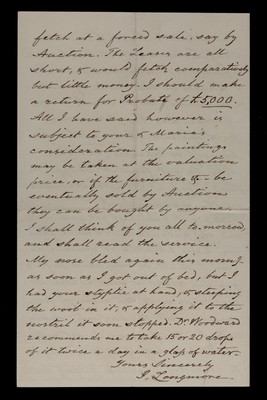 fetch at a forced sale, say by
Auction. The Leases are all
short, & would fetch comparatively
but little money. I should make
a return for Probate of £5,000.
All I have said however is
subject to your & Maria's
consideration. The paintings
may be taken at the valuation
price, or if the furniture &c. be
eventually sold by Auction
they can be bought by anyone.
I shall think of you all to morrow,
and shall read the service.
My nose bled again this morng.
as soon as I got out of bed, but I
had your styptic at hand, & steeping
the wool in it, & applying it to the
nostril it soon stopped. Dr. Woodward
recommends me to take 15 or 20 drops
of it twice a day in a glass of water.
Yours Sincerely
J. Longmore.